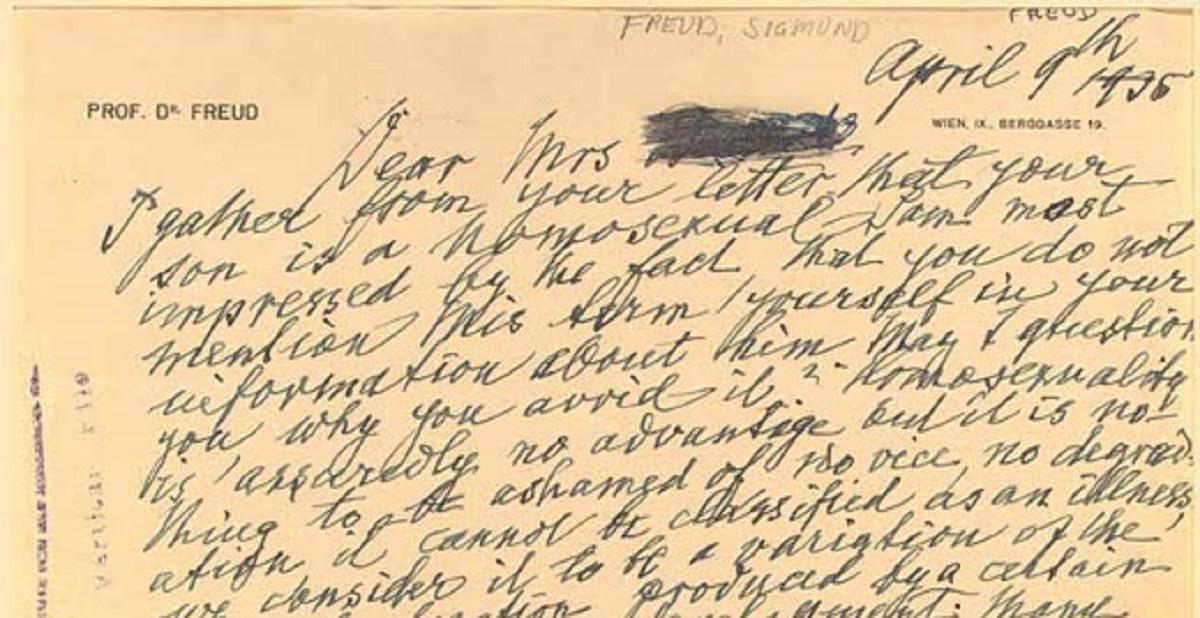 FREUD, SIGMUND
FREUD
April 9th 1935
PROF. DR. FREUD
WIEN, IX., BERGGASSE 19.
Dear Mrs
I gather from your letter that your
son is a homosexual. I am most
impressed by the fact, that you do not
mention this term yourself in your
information about him. May I question
you why you avoid it? Homosexuality
is assuredly no advantage but it is no-
thing to be ashamed of, no vice, no degrad-
ation, it cannot be classified as an illness,
we consider it to be a variation of the
produced by a certain